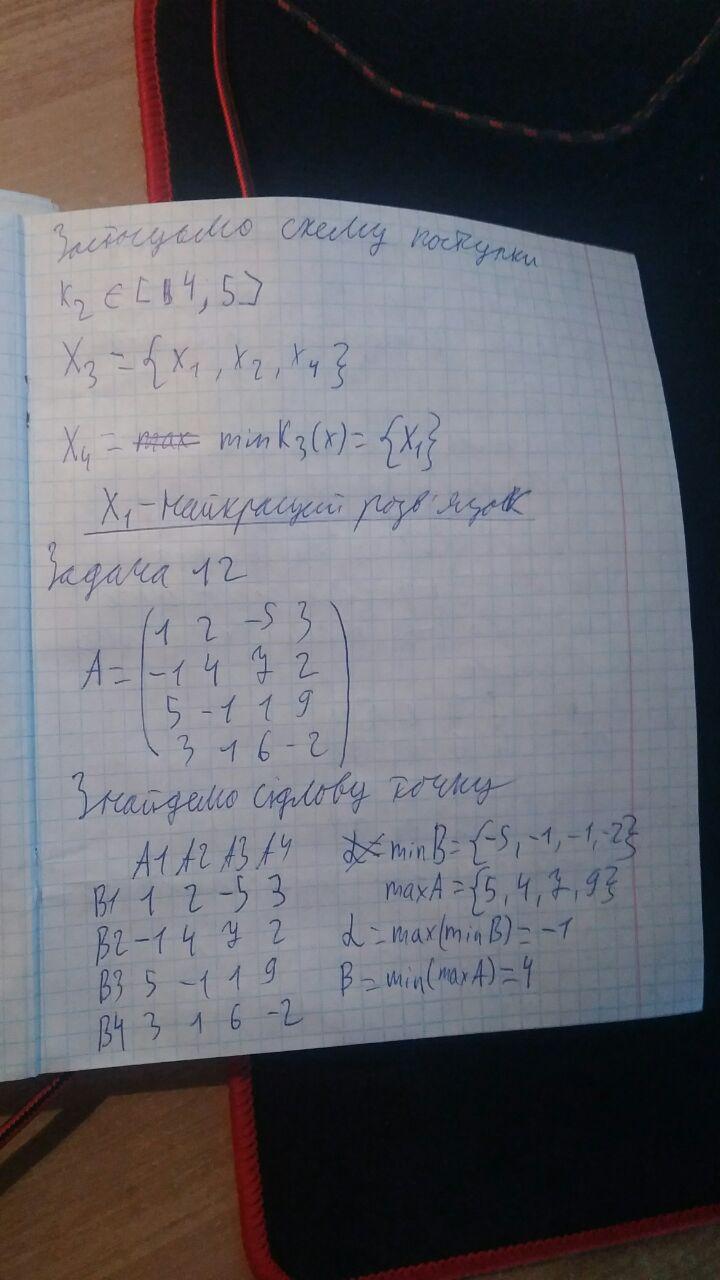 Застосуємо схему поступки
K₂ ∈ [4, 5]
X₃ = {x₁, x₂, x₄}
X₄ = max min K₃(x) = {X₁}
X₁ - найкращий розв'язок
Задача 12
A = (1 2 -5 3
-1 4 7 2
5 -1 1 9
3 1 6 -2)
Знайдемо сідлову точку
A1 A2 A3 A4
B1 1 2 -5 3
B2 -1 4 7 2
B3 5 -1 1 9
B4 3 1 6 -2
minB = {-5, -1, -1, -2}
maxA = {5, 4, 7, 9}
α = max(minB) = -1
B = min(maxA) = 4